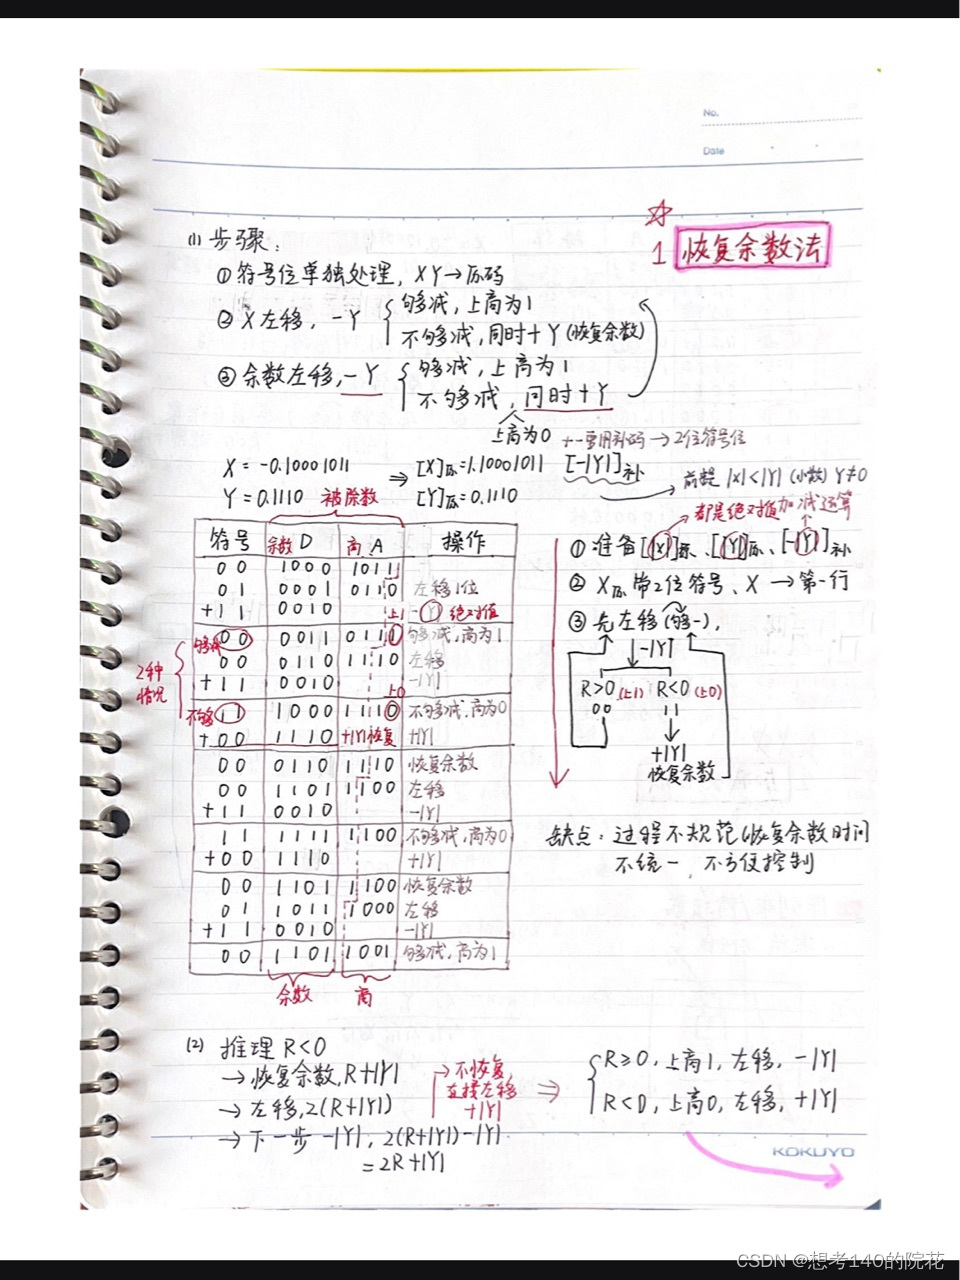 No.
Date
☆
1 恢复余数法
(1) 步骤:
①符号位单独处理, XY→原码
②X左移, -Y { 够减, 上商为1
不够减, 同时+Y(恢复余数)
③余数左移, -Y { 够减, 上商为1
不够减, 同时+Y
上商为0 +-要用补码→2位符号位
X = -0.10001011 ⇒ [X]原=1.10001011 [-|Y|]补
Y = 0.1110 被除数 [Y]原=0.1110
→ 前提 |x|<|Y| (小数) Y≠0
→都是绝对值加减运算
符号 余数D 商A 操作
00 1000 1011
01 0001 0110 左移1位
+11 0010 上1 -|Y| 绝对值
够减 00 0011 0111 够减,商为1
00 0110 1110 左移
+11 0010 上0 -|Y|
2种情况
不够 11 1000 1110 不够减,商为0
+00 1110 +|Y|恢复 +|Y|
00 0110 1110 恢复余数
00 1101 1100 左移
+11 0010 -|Y|
11 1111 1100 不够减,商为0
+00 1110 +|Y|
00 1101 1100 恢复余数
01 1011 1000 左移
+11 0010 -|Y|
00 1101 1001 够减,商为1
余数 商
①准备[|X|]原、[|Y|]原、[-|Y|]补
②X原带2位符号、X→第一行
③先左移(够-),
-|Y|
R>0(上1) R<0(上0)
00 11
+|Y|
恢复余数
缺点: 过程不规范(恢复余数时间
不统一, 不方便控制
(2) 推理 R<0
→恢复余数, R+|Y|
→左移, 2(R+|Y|)
→下一步 -|Y|, 2(R+|Y|)-|Y|
=2R+|Y|
→不恢复,
直接左移
+|Y|
⇒ { R≥0, 上商1, 左移, -|Y|
R<0, 上商0, 左移, +|Y|
KOKUYO
CSDN @想考140的院花